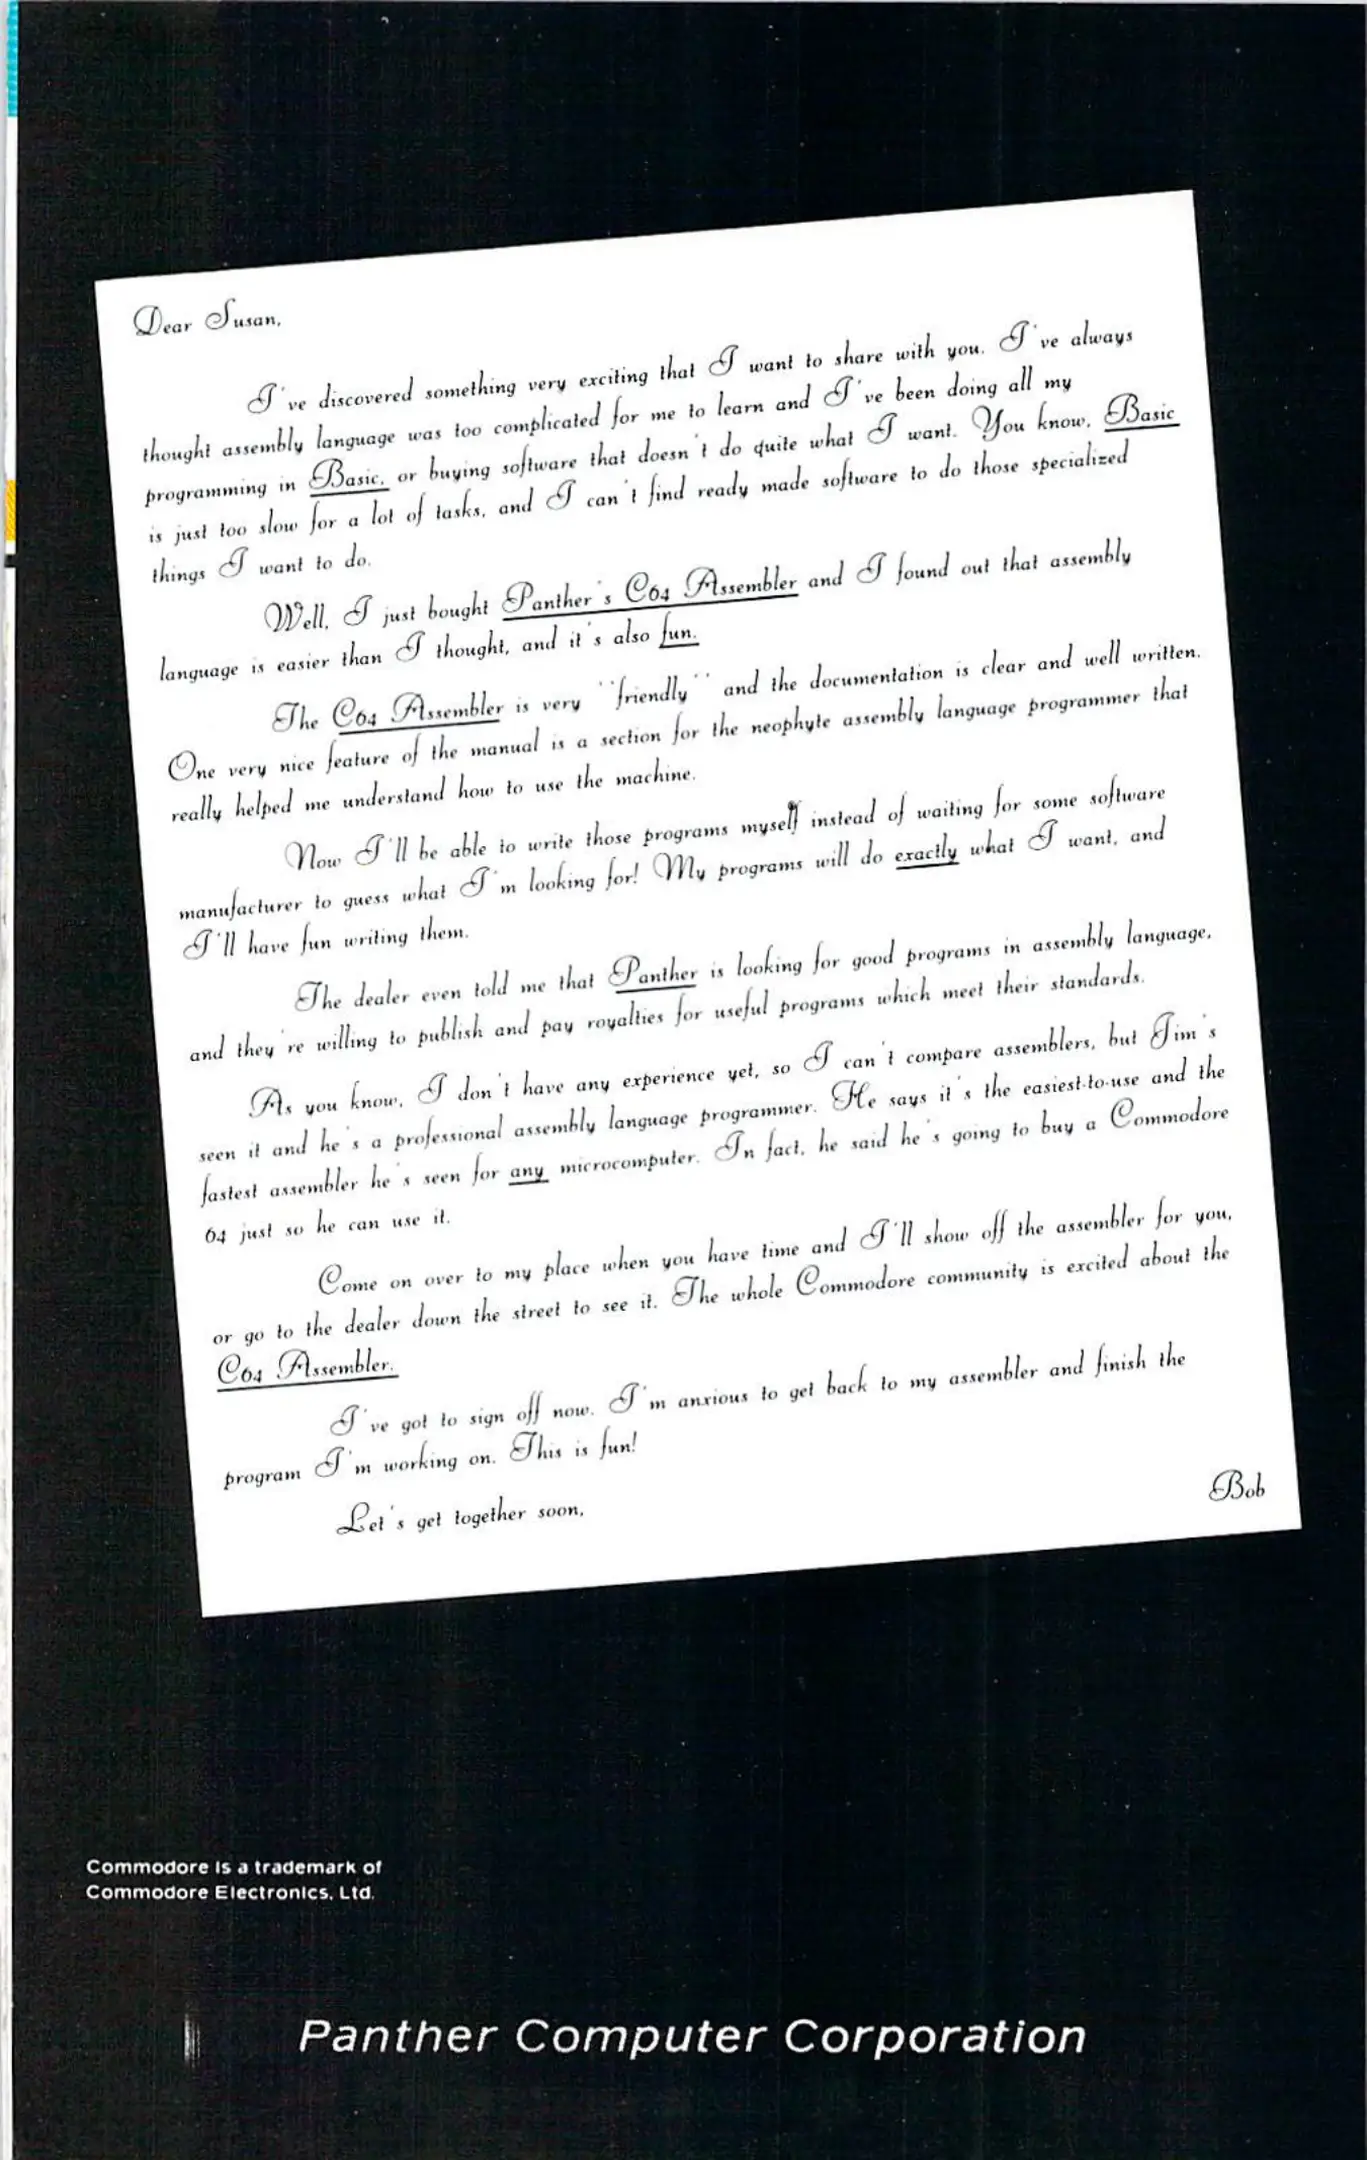 Dear Susan,
I've discovered something very exciting that I want to share with you. I've always
thought assembly language was too complicated for me to learn and I've been doing all my
programming in Basic, or buying software that doesn't do quite what I want. You know, Basic
is just too slow for a lot of tasks, and I can't find ready made software to do those specialized
things I want to do.
Well, I just bought Panther's C64 Assembler and I found out that assembly
language is easier than I thought, and it's also fun.
The C64 Assembler is very "friendly" and the documentation is clear and well written.
One very nice feature of the manual is a section for the neophyte assembly language programmer that
really helped me understand how to use the machine.
Now I'll be able to write those programs myself instead of waiting for some software
manufacturer to guess what I'm looking for! My programs will do exactly what I want, and
I'll have fun writing them.
The dealer even told me that Panther is looking for good programs in assembly language,
and they're willing to publish and pay royalties for useful programs which meet their standards.
As you know, I don't have any experience yet, so I can't compare assemblers, but Jim's
seen it and he's a professional assembly language programmer. He says it's the easiest-to-use and the
fastest assembler he's seen for any microcomputer. In fact, he said he's going to buy a Commodore
64 just so he can use it.
Come on over to my place when you have time and I'll show off the assembler for you,
or go to the dealer down the street to see it. The whole Commodore community is excited about the
C64 Assembler.
I've got to sign off now. I'm anxious to get back to my assembler and finish the
program I'm working on. This is fun!
Let's get together soon,
Bob
Commodore is a trademark of
Commodore Electronics, Ltd.
Panther Computer Corporation